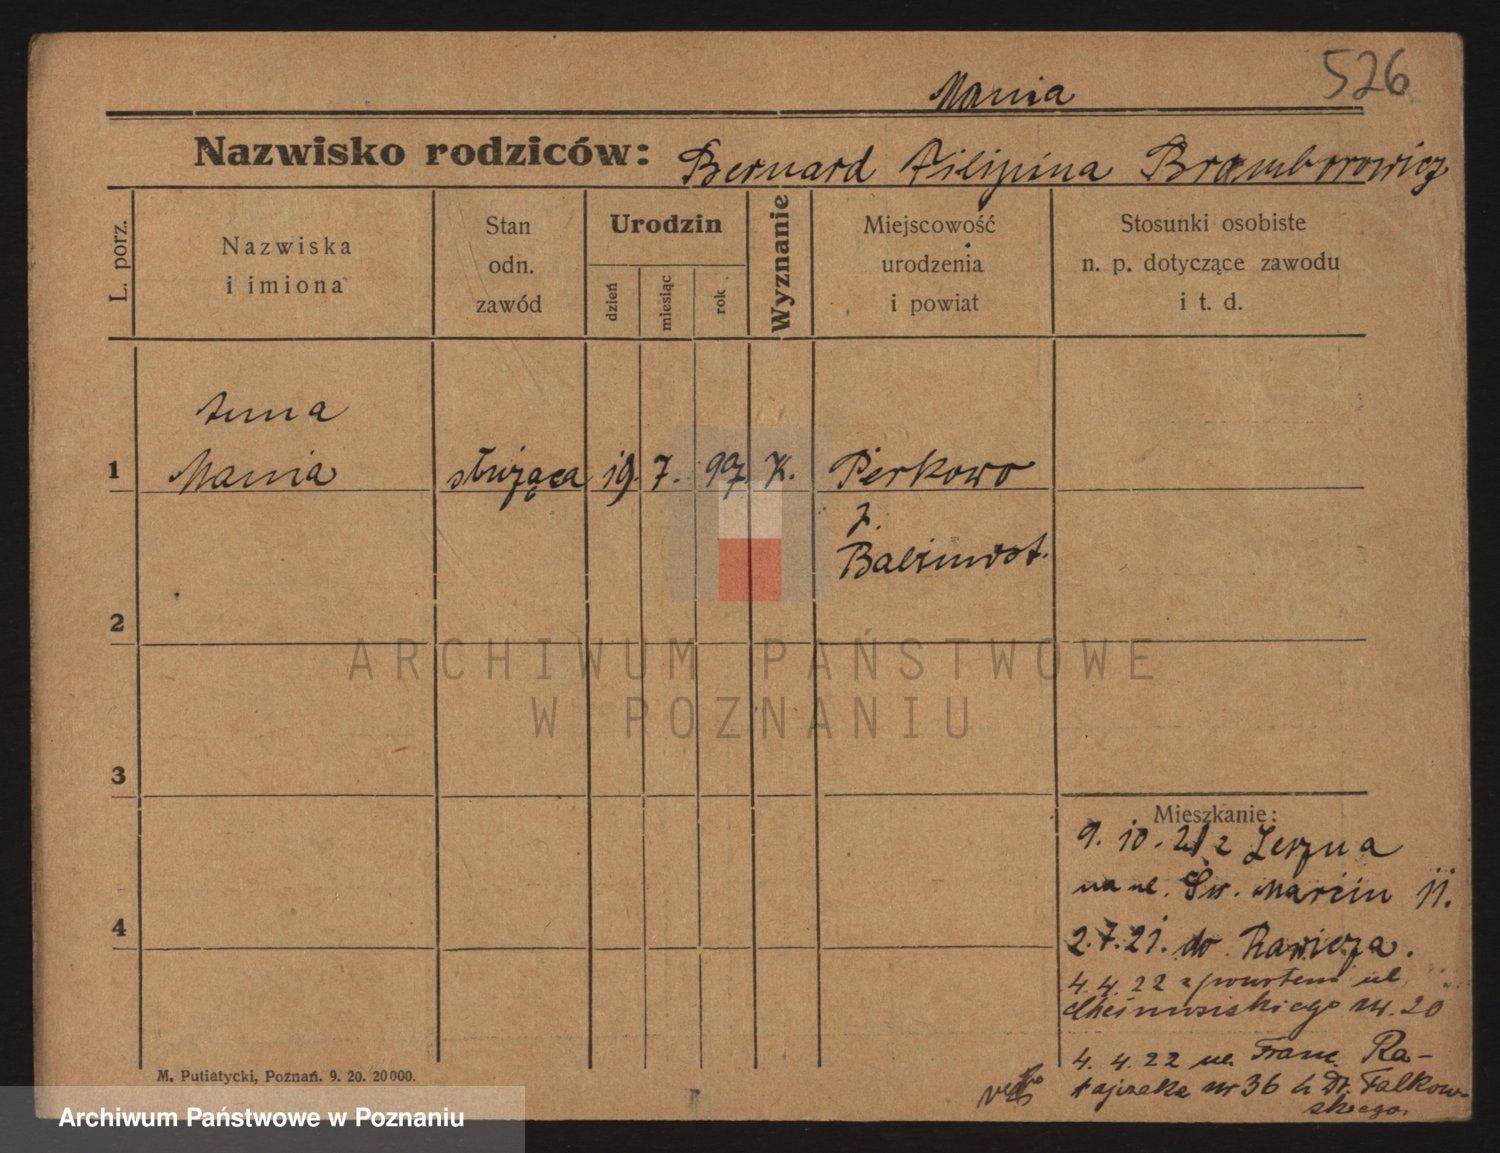 526
Mania
Nazwisko rodziców: Bernard Filipina Bramborowicz
L. porz.
Nazwiska
i imiona
Stan
odn.
zawód
Urodzin
dzień
miesiąc
rok
Wyznanie
Miejscowość
urodzenia
i powiat
Stosunki osobiste
n. p. dotyczące zawodu
i t. d.
Anna
1 Mania służąca 19. 7. 97 K. Perkowo
p.
2
3
4
Mieszkanie:
9. 10. 21 z Leszna
na ul. Św. Marcin 11.
2.7.21. do Rawicza.
4.4.22 z powrotem ul
nr. 20
4. 4. 22 ul. Franc. Ra-
tajczaka nr 36 b Dr. Falkow-
skiego.
M. Putiatycki, Poznań. 9. 20. 20000.
ARCHIWUM PAŃSTWOWE
W POZNANIU
Archiwum Państwowe w Poznaniu